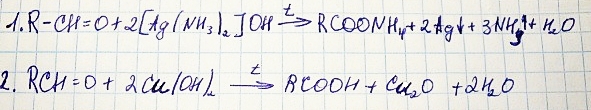 1. R-CH=O+2[Ag(NH₃)₂]OH —t→ RCOONH₄+2Ag↓+3NH₃↑+H₂O
2. RCH=O+2Cu(OH)₂ —t→ RCOOH+Cu₂O+2H₂O